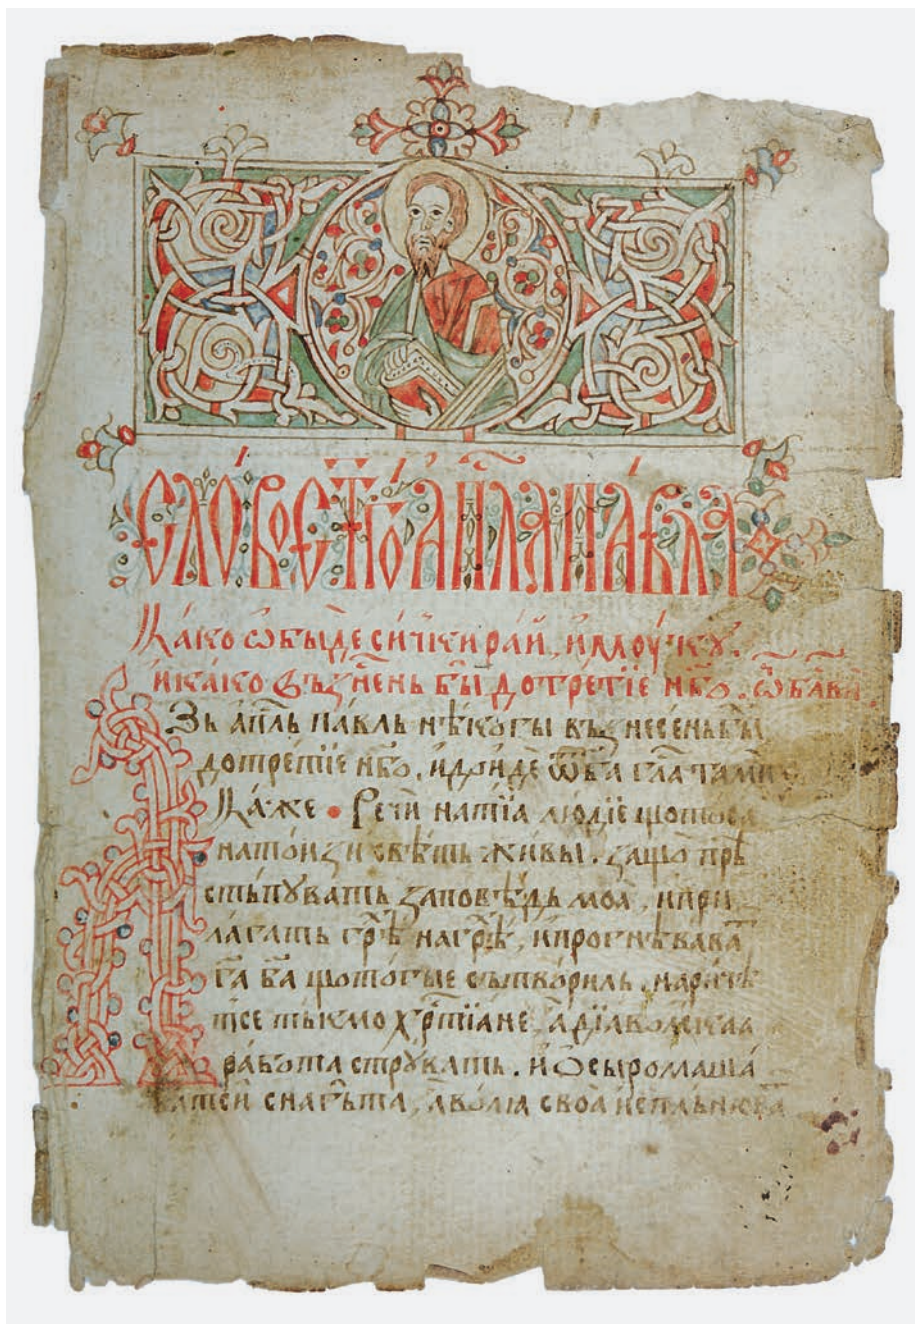 СЛОВО СТ҃ГО АП҃ЛА ПАВЛА
Како ѡбыде сички рай, и моукꙋ.
и како възн҃сень бы̑ до третїе нб҃о.
Азь ап҃ль павль нѣкогы възнесень бы̑
до третїе нб҃о, и дойде
Каже · Речи на тїа людїе щото са
на тоизи свѣть живы. защо прѣ
стьпꙋвать заповѣдь моа, и при
лагать грѣ̑ на грѣ̑, и прогнѣвава̑
га ба҃ щото гы е сътворилъ, нарич
тсе тькмо хрⷭ҇тїане, а дїаволскаа
работа стрꙋвать. и ѿ сыромаша
свѡа исплънюва̑